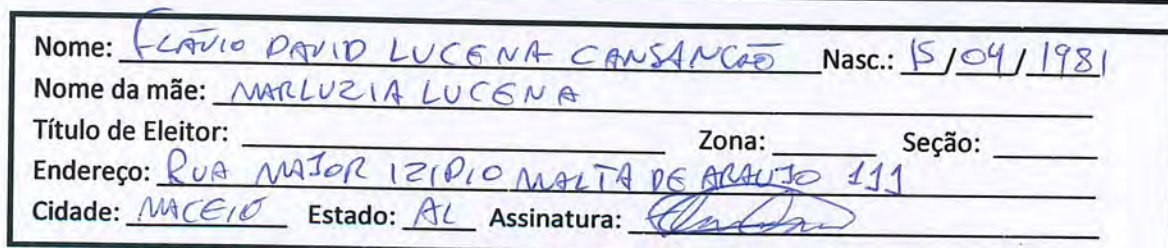 Nome: FLÁVIO DAVID LUCENA CANSANCÃO Nasc.: 15/04/1981
Nome da mãe: MARLUZIA LUCENA
Título de Eleitor: Zona: Seção:
Endereço: RUA MAJOR IZIPIO MALTA DE ARAUJO 111
Cidade: MACEIÓ Estado: AL Assinatura: